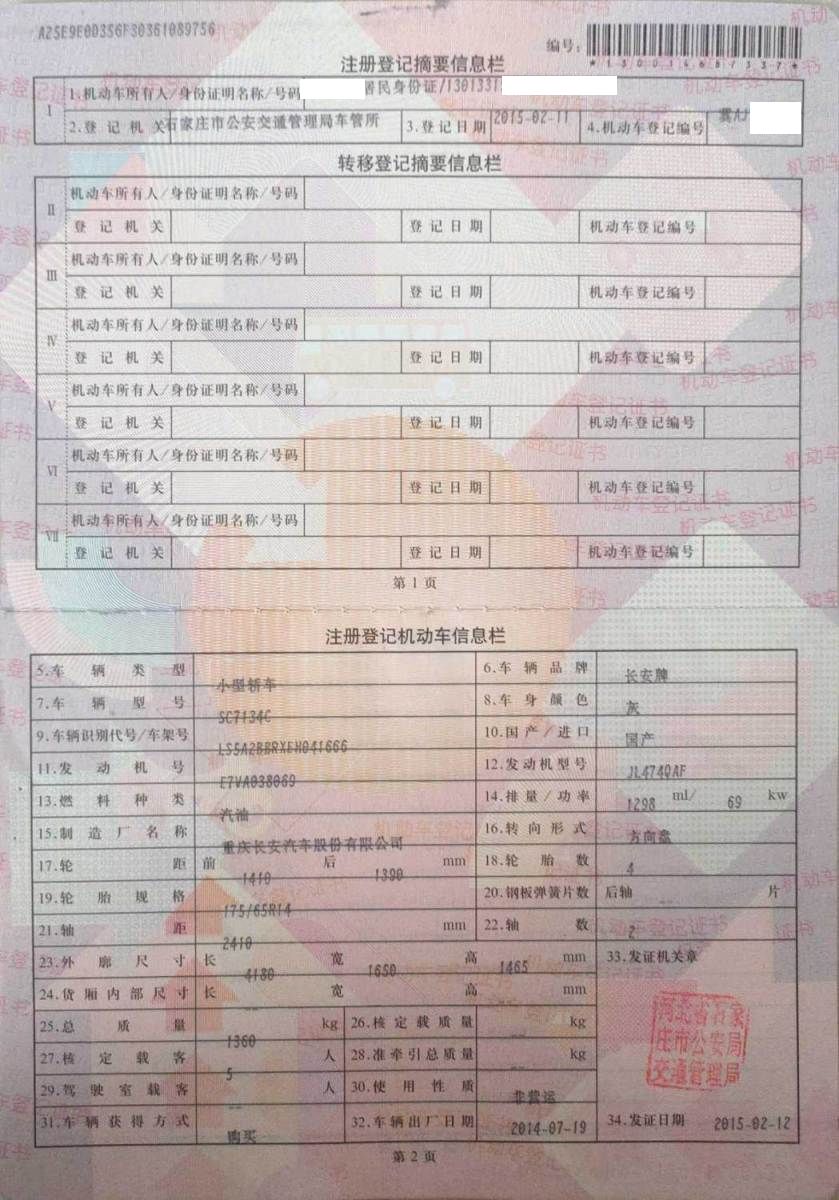 A25E9E00356F30361089756
编号:
*130014687337*
注册登记摘要信息栏
I 1.机动车所有人/身份证明名称/号码 居民身份证/1301331
2.登记机关 石家庄市公安交通管理局车管所 3.登记日期 2015-02-11 4.机动车登记编号 冀A
转移登记摘要信息栏
II 机动车所有人/身份证明名称/号码
登记机关 登记日期 机动车登记编号
III 机动车所有人/身份证明名称/号码
登记机关 登记日期 机动车登记编号
IV 机动车所有人/身份证明名称/号码
登记机关 登记日期 机动车登记编号
V 机动车所有人/身份证明名称/号码
登记机关 登记日期 机动车登记编号
VI 机动车所有人/身份证明名称/号码
登记机关 登记日期 机动车登记编号
VII 机动车所有人/身份证明名称/号码
登记机关 登记日期 机动车登记编号
第1页
注册登记机动车信息栏
5.车辆类型 小型轿车 6.车辆品牌 长安牌
7.车辆型号 SC7134C 8.车身颜色 灰
9.车辆识别代号/车架号 LS5A2BBRXEH041666 10.国产/进口 国产
11.发动机号 E7VA038069 12.发动机型号 JL474QAF
13.燃料种类 汽油 14.排量/功率 1298 ml/ 69 kw
15.制造厂名称 重庆长安汽车股份有限公司 16.转向形式 方向盘
17.轮距 前 1410 后 1390 mm 18.轮胎数 4
19.轮胎规格 175/65R14 20.钢板弹簧片数 后轴 -- 片
21.轴距 2410 mm 22.轴数 2
23.外廓尺寸 长 4180 宽 1650 高 1465 mm 33.发证机关章
24.货厢内部尺寸 长 -- 宽 -- 高 -- mm
25.总质量 1360 kg 26.核定载质量 -- kg
27.核定载客 5 人 28.准牵引总质量 -- kg
29.驾驶室载客 -- 人 30.使用性质 非营运
31.车辆获得方式 购买 32.车辆出厂日期 2014-07-19 34.发证日期 2015-02-12
河北省石家
庄市公安局
交通管理局
第2页